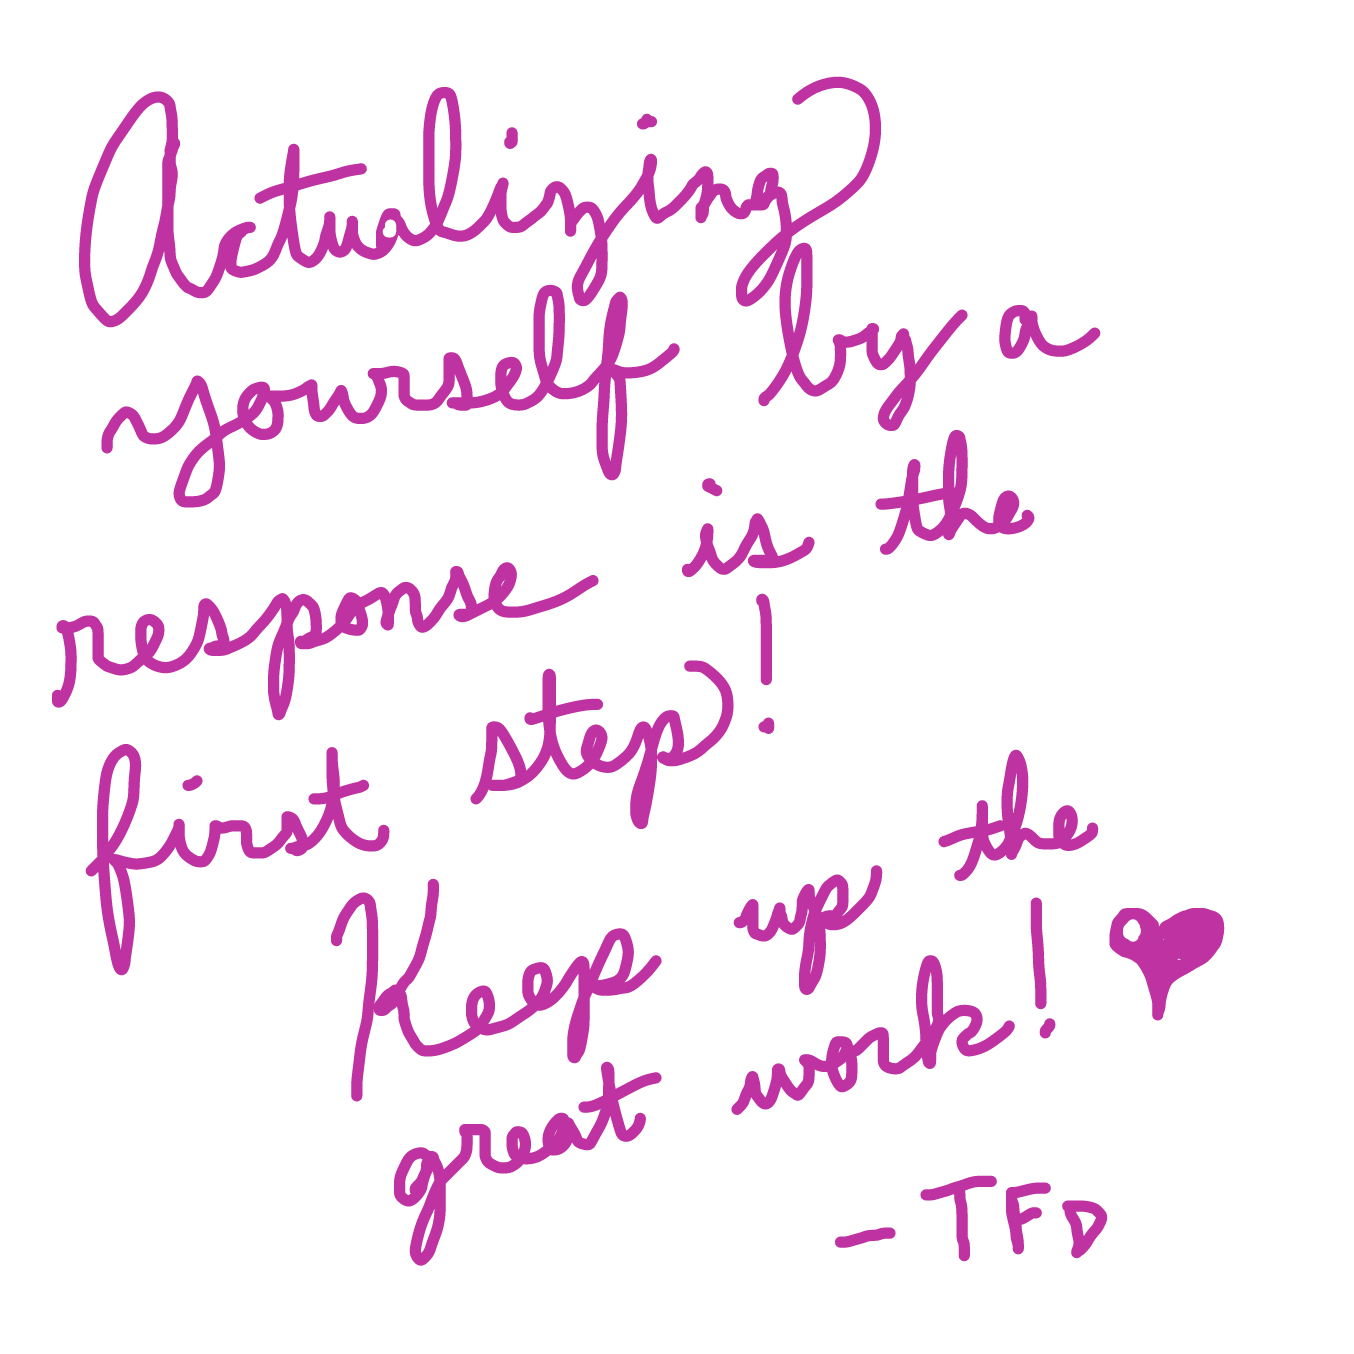 Actualizing
yourself by a
response is the
first step!
Keep up the
great work! ♥
- TFD